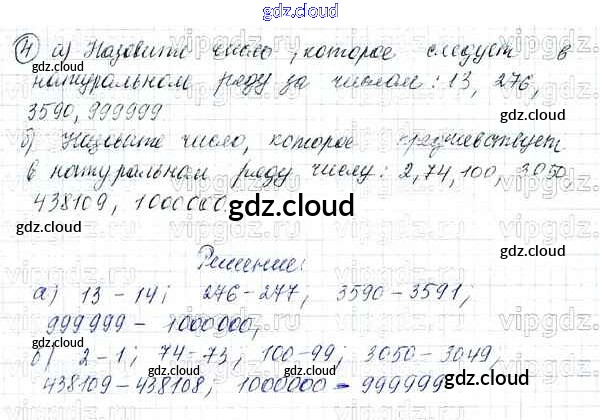 gdz.cloud
④ а) Назовите число, которое следует в
натуральном ряду за числом: 13, 276,
3590, 999999
б) Назовите число, которое предшествует
в натуральном ряду числу: 2, 74, 100, 3050,
438109, 1000000.
gdz.cloud
gdz.cloud
gdz.cloud
gdz.cloud
Решение:
а) 13 – 14; 276 – 277; 3590 – 3591;
999999 – 1000000;
б) 2 – 1; 74 – 73; 100 – 99; 3050 – 3049;
438109 – 438108; 1000000 – 999999
gdz.cloud
gdz.cloud
gdz.cloud
gdz.cloud